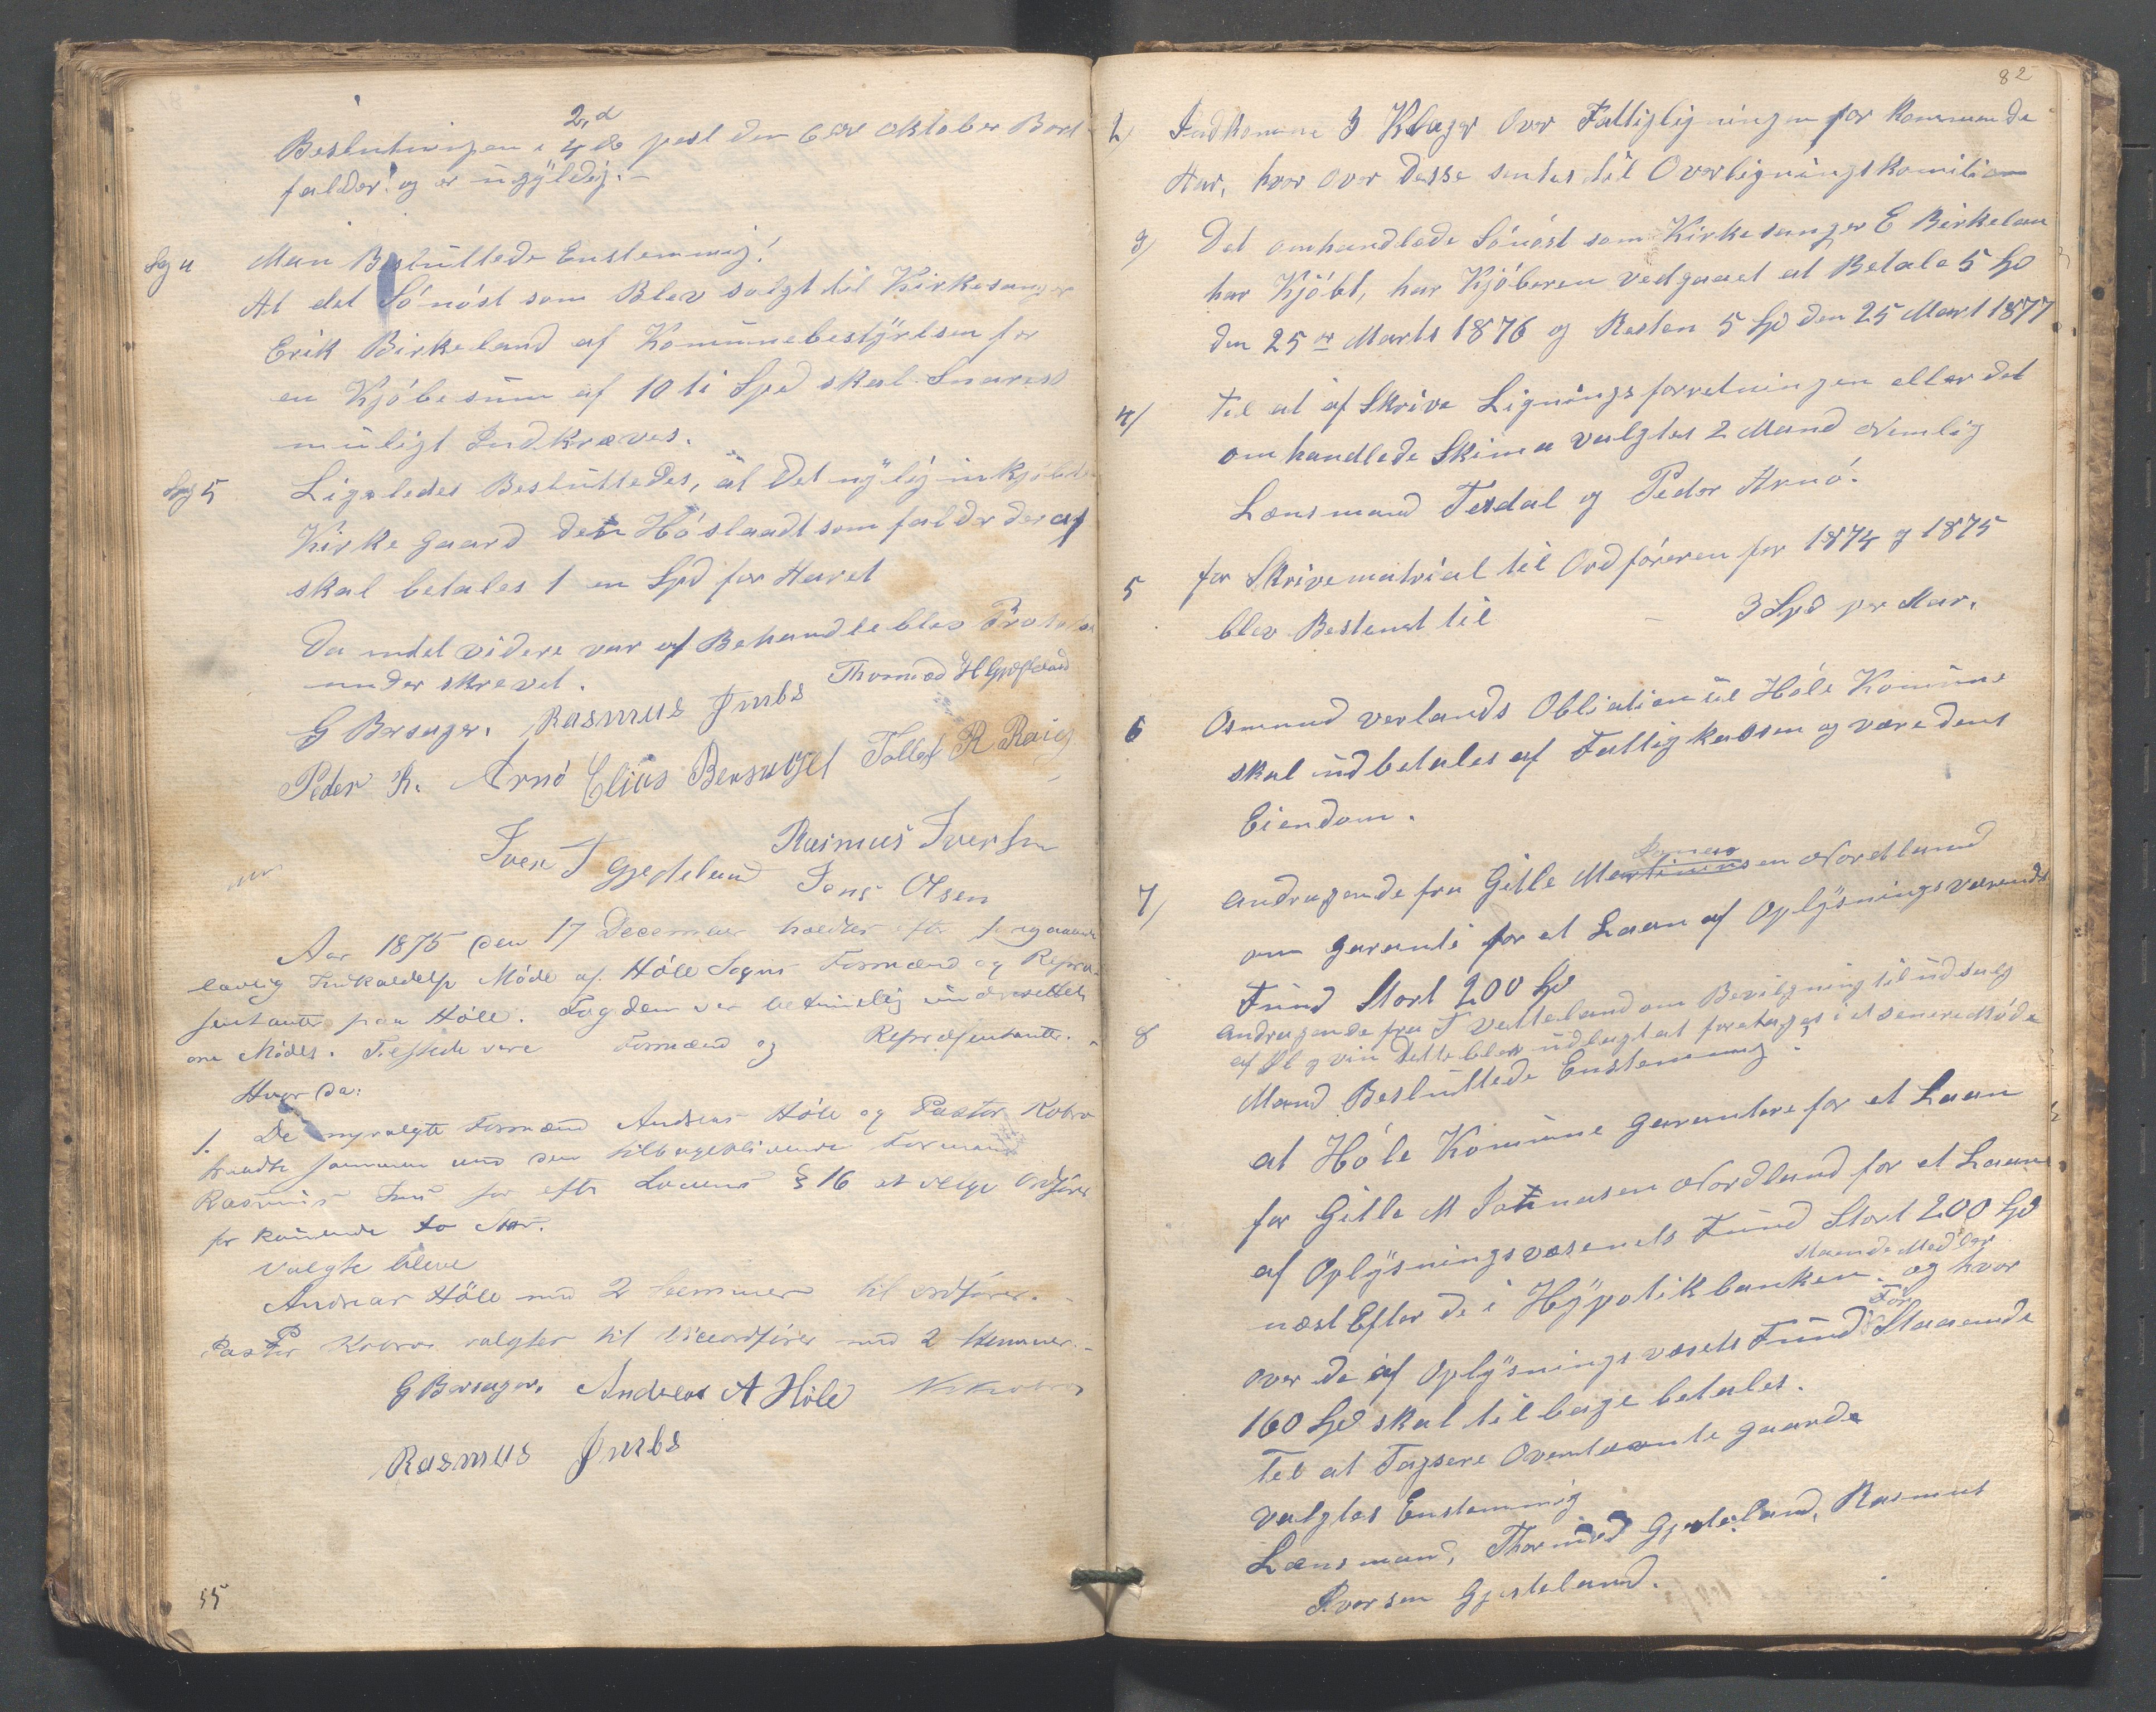 2,d
Beslutningen i 4de post den 6te oktober Bort
falder! og er ugyldig.-
Sag 4 Man Besluttede Enstemmig!
At det Sónóst som Blev solgt til Kirkesanger
Erik Birkeland af Komunebestyrelsen for
en Kjóbesum af 10 ti Spd skal Snarest
muligt Indkræves.
Sag 5 Ligeledes Besluttedes, at det nylig inkjóbte
Kirkegaard den Hóslaadt som falder deraf
skal betales 1 en Spd for Aaret
Da indet videre var af Behandle blev
under skrevet.
G Bersager. Rasmus Jmbs
Peder R. Arnó Elias Bersaget Tollef R
Iver T Gjesteland Rasmus Iversen
Jens Olsen
Aar 1875 den 17 December holdtes efter foregaaende
lovlig Indkaldelse Móde af Hóle Sogns Formænd og Repræ-
sentanter paa Hóle. Fogden var betimelig underrettet
om Módet. Tilstede vare Formænd og Repræsentanter.-
Hvor da:
1. De nyvalgte Formænd Andreas Hóle og Pastor Kobro
traadte sammen med den tilbageblivende Formand
Rasmus Ims for efter Lovens § 16 at vælge Ordfórer
for kommende to Aar.
Valgte bleve
Andreas Hóle med 2 Stemmer til ordfórer.-
Pastor Kobro valgtes til Viceordfórer med 2 Stemmer.-
G Bersager. Andreas A Hóle
Rasmus Jmbs
55
82
2/ Indkomne 3 Klager Over Fattigligningen for Kommende
Aar, hvor Over Desse sentes til Overligningskomitien
3/ Det omhandlede Sónóst som Kirkesanger E Birkelan
har Kjóbt, har Kjóberen vedgaaet at Betale 5 Spd
den 25de Marts 1876 og Resten 5 Spd den 25 Mart 1877
4/ Til at af Skrive Ligningsforretningen eller det
omhandlede Skima valgtes 2 Mand Nemlig
Lensmand Tesdal og Peder Arnó.
5 for Skrivematrial til Ordfóreren for 1874 og 1875
blev Bestemt til - 3 Spd per Aar.
6 Osmund verlands Obliation til Hóle Komune
skal udbetales af Fattigkassen og være dens
Eiendom.
7/ andragende fra Gitle Martinusen Nordland
om garanti for et Laan af Oplysningsvæsends
Fund Stort 200 Spd
8 andragende fra T Vatteland om Bevilgning til udsalg
af Öl og vin Dette blev udlagt at foretages i et senere Móde
Mand Besluttede Enstemmig!
at Hóle Komune garantere for et Laan
for Gitle M Jonnasen Nordland for et Laan
af Oplysningsvæsenets Fund Stort 200 Spd
næst Efter de i Hypotikbanken staaende Midler og hvor
over de af Oplysningsvæsets Fund For Staaende
160 Spd skal tilbage betales.
Til at Taxere Ovennævnte gaarde
valgtes Enstemmig
Lensmand, Thormod Gjesteland, Rasmus
Iversen Gjesteland.